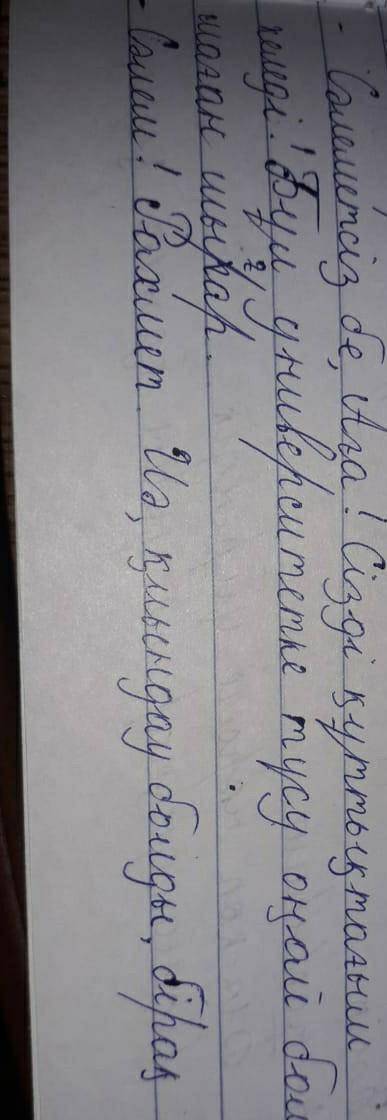 - Сәлеметсіз бе, Аға! Сізді құттықтағым
келеді! Бұл университетке түсу оңай бол
маған шығар.
- Сәлем! Рахмет. Иә, қиындау болды, бірақ